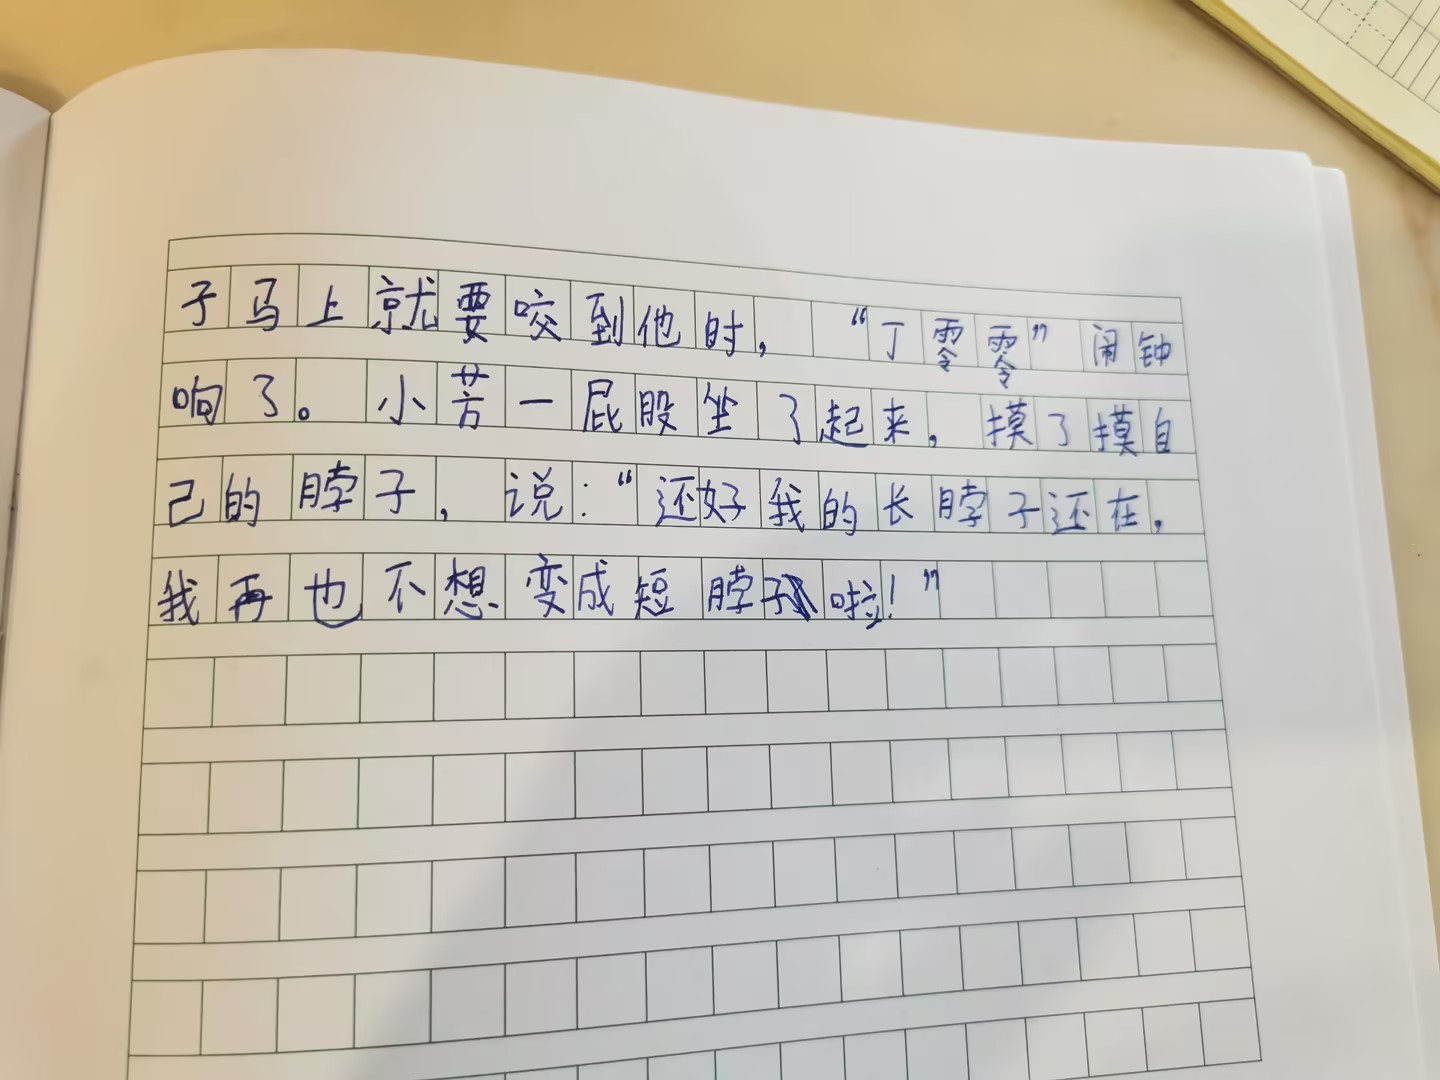 子马上就要咬到他时，“丁零零”闹钟
响了。小芳一屁股坐了起来，摸了摸自
己的脖子，说：“还好我的长脖子还在，
我再也不想变成短脖子啦！”